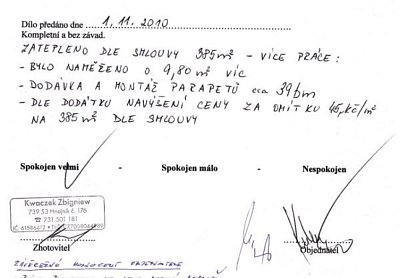 Dílo předáno dne 1.11.2010
Kompletní a bez závad.
ZATEPLENO DLE SMLOUVY 385m² - VÍCE PRÁCE:
- BYLO NAMĚŘENO O 9,80m² VÍC
- DODÁVKA A MONTÁŽ PARAPETŮ cca 39bm
- DLE DODÁTKU NAVÝŠENÍ CENY ZA OMÍTKU 45,-kč/m²
NA 385m² DLE SMLOUVY
Spokojen velmi - Spokojen málo - Nespokojen
Kwaczek Zbigniew
739 53 Hnojník č. 176
731 501 181
Zhotovitel
Objednatel